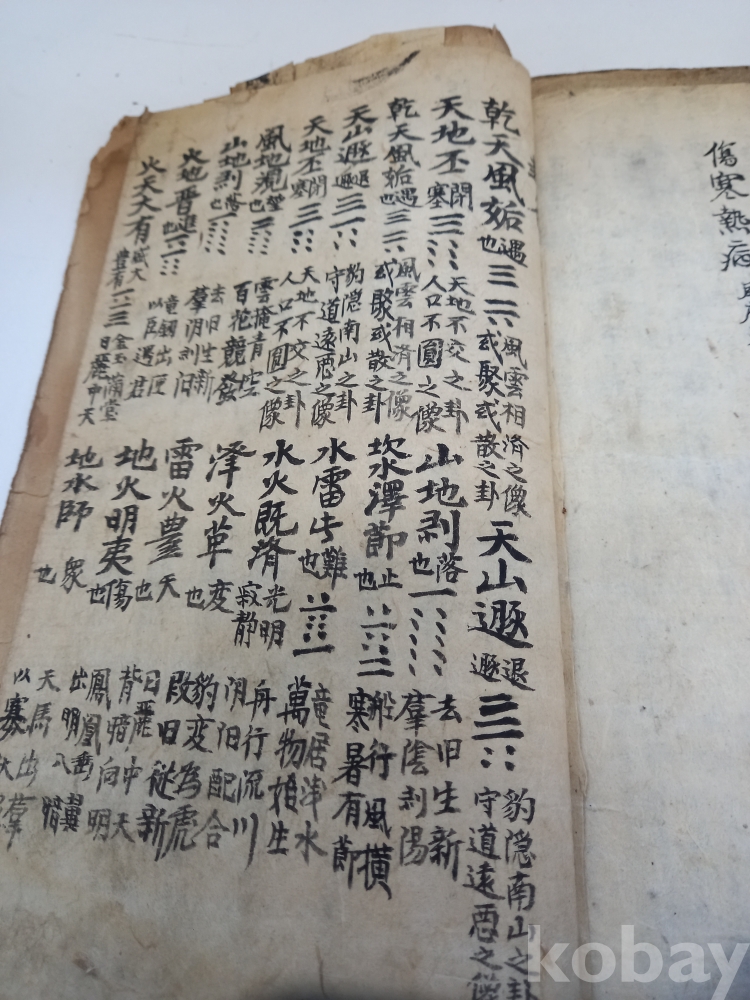 傷寒熱病
乾天風姤 遇也 風雲相済之像 或聚或散之卦 天山遯 退遯 豹隠南山之卦 守道遠悪之像
天地丕 閉塞 天地不交之卦 人口不圓之像 山地剥 落也 去旧生新 羣陰剥陽
乾天風姤 遇也 風雲相済之像 或聚或散之卦 坎澤節 止也 船行風横 寒暑有節
天山遯 退遯 豹隠南山之卦 守道遠悪之像 水雷屯 難也 竜居浅水 萬物始生
天地丕 閉塞 天地不交之卦 人口不圓之像 水火既済 光明寂静 舟行流川 阴阳配合
風地觀 望也 雲掩青空 百花競發 澤火革 変也 豹変為虎 改旧従新
山地剥 落也 去旧生新 羣阴剥阳 雷火豊 大也 日麗中天 背暗向明
火地晋 進也 竜劒出匣 以臣遇君 地火明夷 傷也 鳳凰垂翼 出明入暗
火天大有 盛大豊有 金玉滿堂 日麗中天 地水師 衆也 天馬出羣 以寡
kobay